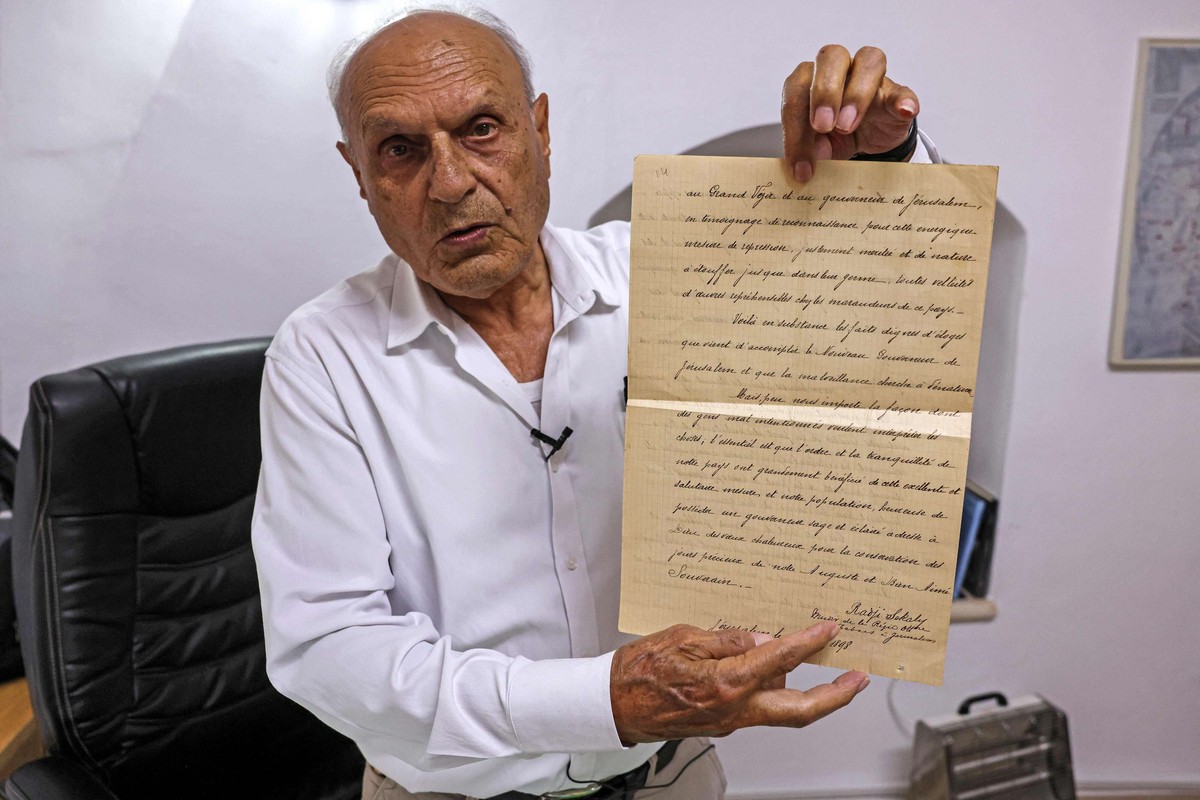 au Grand Vizir et au gouverneur de Jérusalem,
en témoignage de reconnaissance pour cette énergique
mesure de repression, justement méritée et de nature
à étouffer jusque dans leur germe, toutes velléités
d'œuvres repréhensibles chez les maraudeurs de ce pays._
Voilà en substance les faits dignes d'éloges
que vient d'accomplir le Nouveau Gouverneur de
Jérusalem et que la malveillance cherche à
Mais peu nous importe la façon dont
des gens mal intentionnés veulent interpréter les
choses, l'essentiel est que l'ordre et la tranquillité de
notre pays ont grandement bénéficié de cette excellente et
salutaire mesure, et notre population, heureuse de
posséder un gouverneur sage et éclairé adresse à
Dieu des vœux chaleureux pour la conservation des
jours précieux de notre Auguste et Bien Aimé
Souverain._
Radji Sekaly
de la Régie
à Jérusalem
Jérusalem le
1898